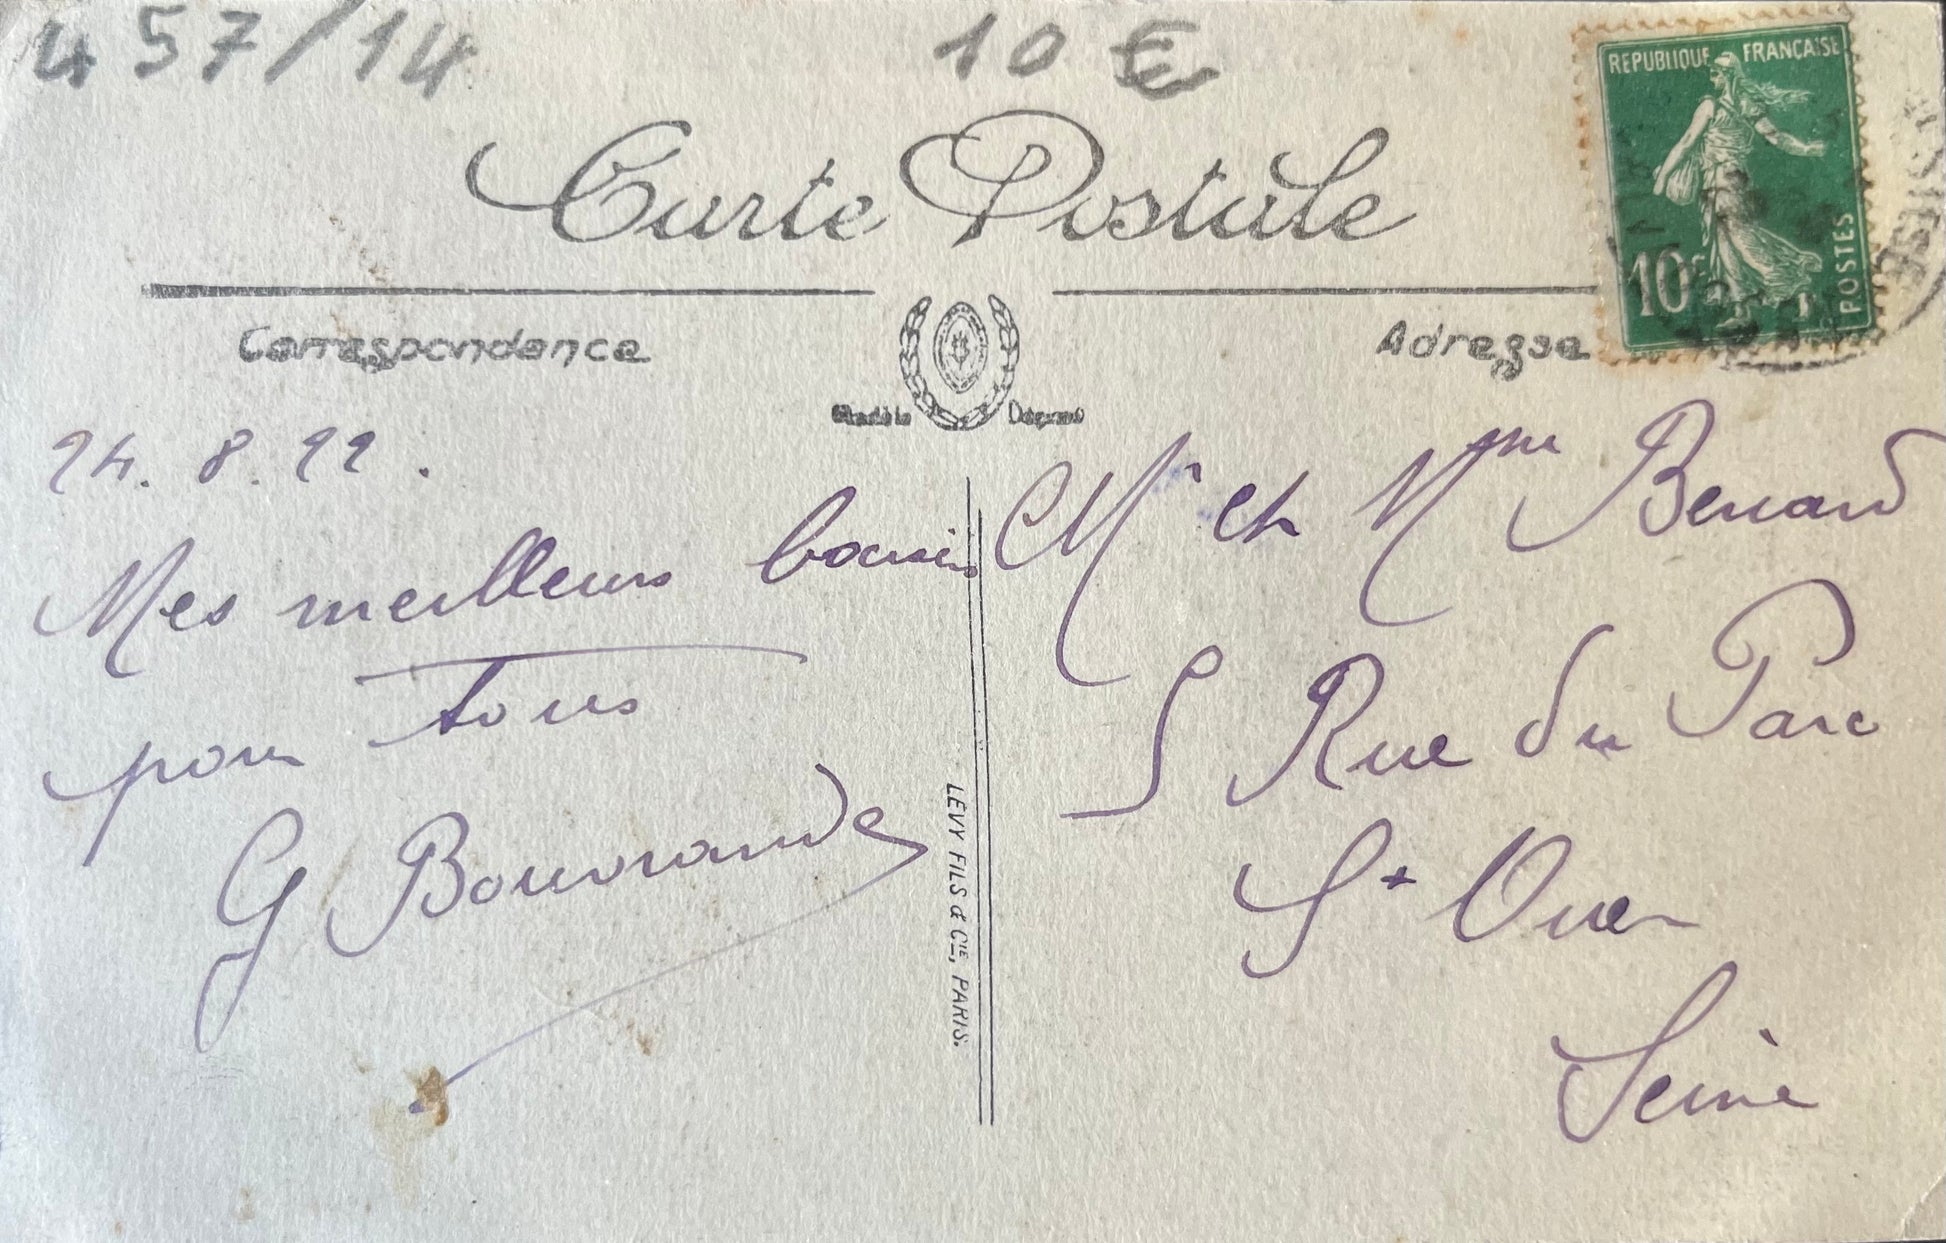 457/14
10 €
REPUBLIQUE FRANÇAISE
10c
POSTES
Carte Postale
Correspondance
Adresse
Modèle Déposé
24.8.22.
Mes meilleurs baisers
pour tous
G
Mr et Mme Benard
5 Rue du Parc
St Ouen
Seine
LEVY FILS & CIE, PARIS.